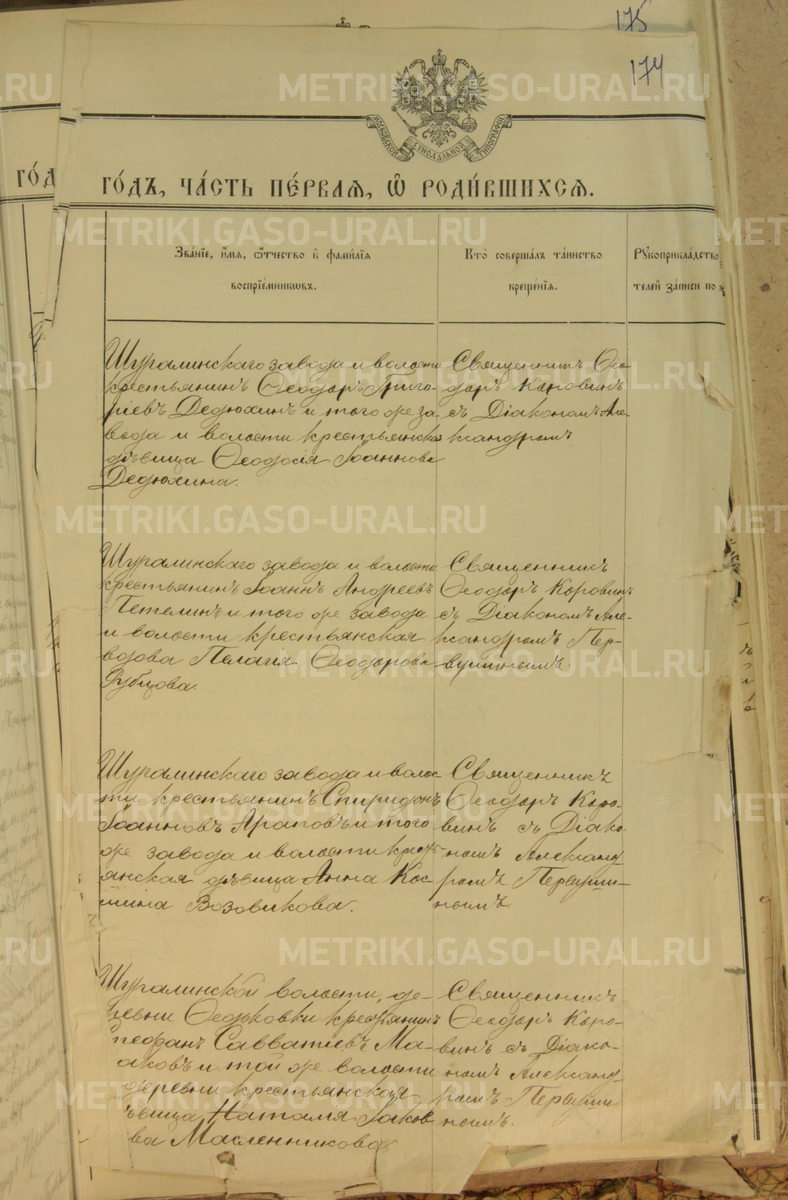 175
174
METRIKI.GASO-URAL.RU
МОСКОВСКОЙ СѴНОДАЛЬНОЙ ТИПОГРАФІИ
ГО́Д
ГО́ДЪ, ЧА́СТЬ ПЕ́РВАЯ, Ѽ РОДИ́ВШИХСЯ.
Зва́нїе, и҆́мя, ѻ҆́тчество и҆ фами́лїя
воспрїе́мникѡвъ.
Кто̀ соверша́лъ та́инство
креще́нїя.
Рꙋкоприкла́дство
телей за́писи по
Шуралинскаго завода и волости
крестьянинъ Ѳеодоръ Григо-
ріевъ Дедюхинъ и того же за-
вода и волости крестьянская
дѣвица Ѳеодосія Іоаннова
Дедюхина.
Священникъ Ѳео-
доръ Коровинъ
съ Діакономъ Але-
ксандромъ
Шуралинскаго завода и волости
крестьянинъ Іоаннъ Андреевъ
Петелинъ и того же завода
и волости крестьянская
вдова Пелагія Ѳеодорова
Рубцова.
Священникъ
Ѳеодоръ Коровинъ
съ Діакономъ Але-
ксандромъ Пер-
вушинымъ.
Шуралинскаго завода и волос-
ти крестьянинъ Спиридонъ
Іоанновъ Араповъ и того
же завода и волости крест-
янская дѣвица Анна Кос-
мина Возовикова.
Священникъ
Ѳеодоръ Коро-
винъ съ Діако-
номъ Александ-
ромъ Первуши-
нымъ.
Шуралинской волости, де-
ревни Ѳедьковки крестьянинъ
Савватіевъ
и той же волости
деревни крестьянская
дѣвица Наталія Іаков
ва Масленникова
Священникъ
Ѳеодоръ Коро-
винъ съ Діако-
номъ Александ-
ромъ Первуши
нымъ.